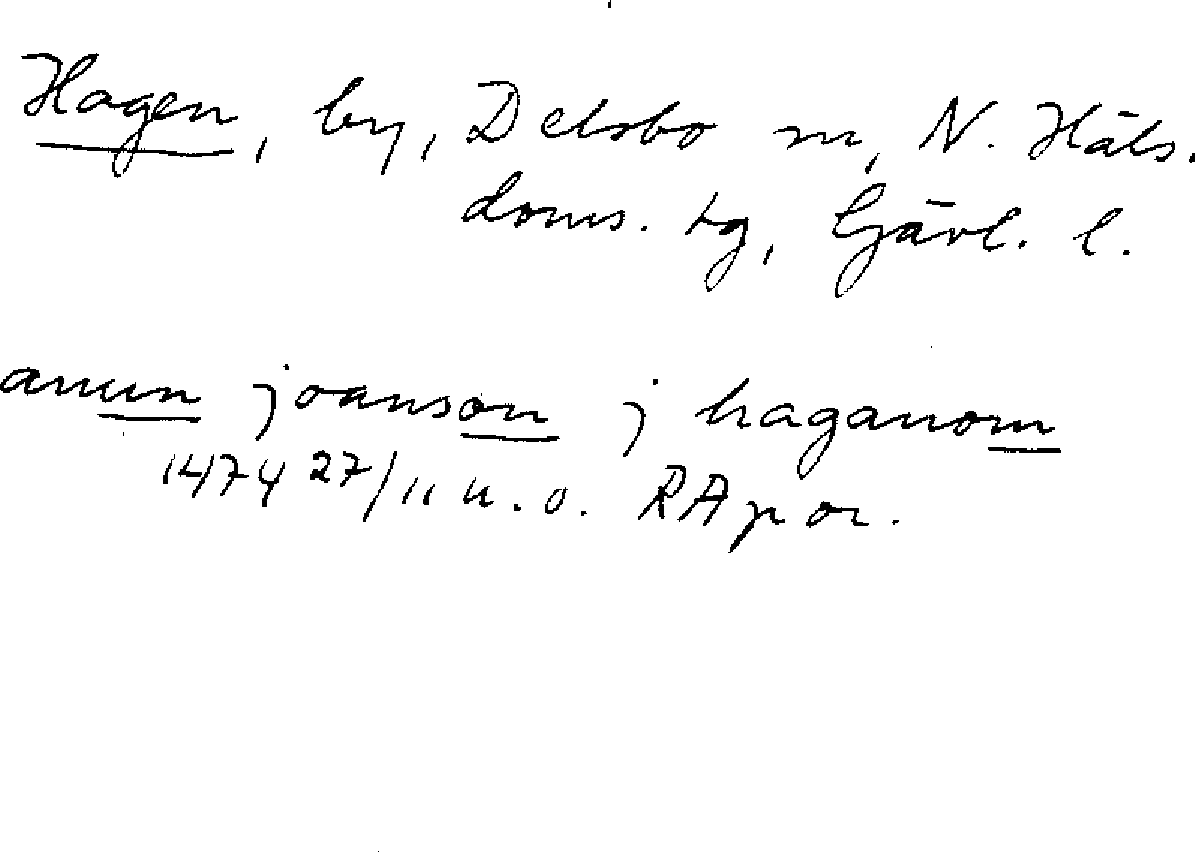 Hagen, by, Delsbo sn, N. Häls.
doms. tg, Gävl. l.
anun joanson j haganom
1474 27/11 u. o. RAp or.